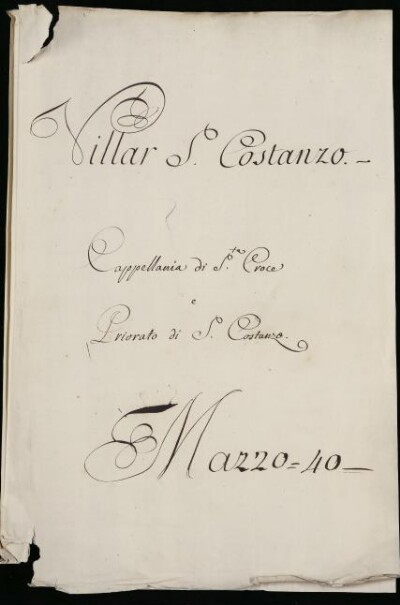 Villar S. Costanzo.-
Cappellania di S.ta Croce
e
Priorato di S. Costanzo.
Mazzo=40-